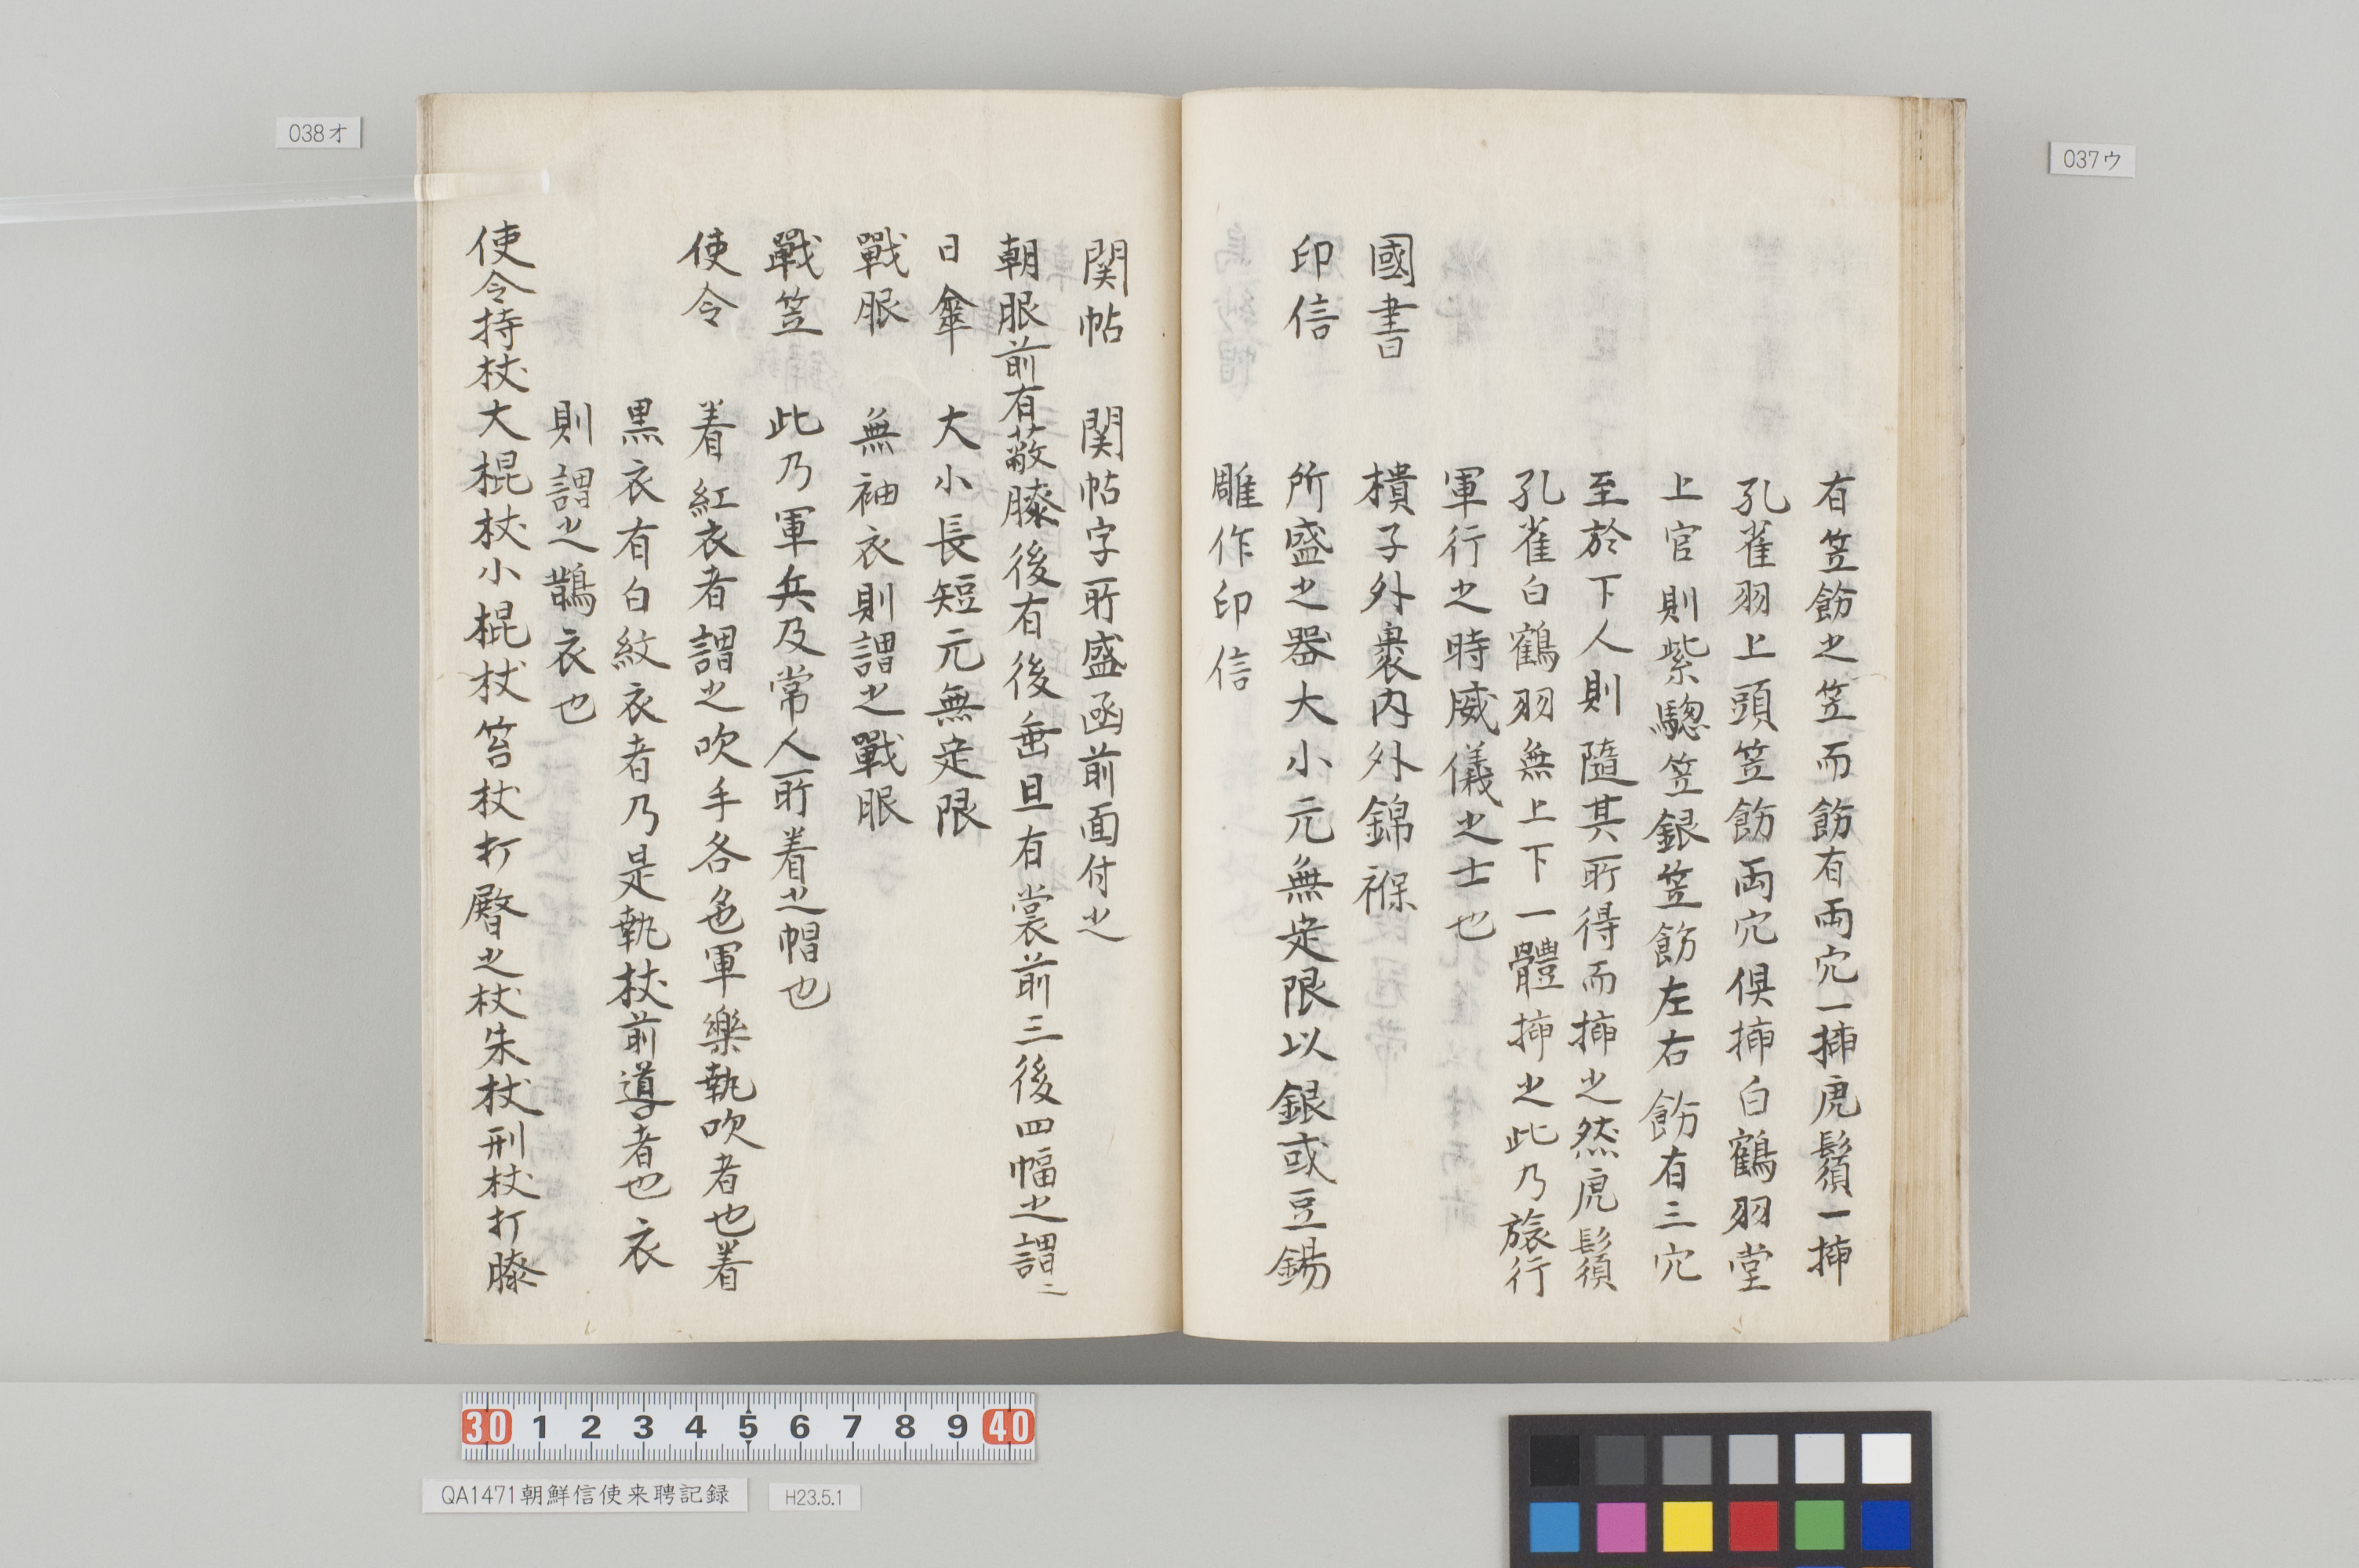 037ウ
有笠飾之笠而飾有両穴一揷虎鬚一揷
孔雀羽上頭笠飾両穴俱揷白鶴羽堂
上官則紫騘笠銀笠飾左右飾有三穴
至於下人則隨其所得而揷之然虎鬚
孔雀白鶴羽無上下一體揷之此乃旅行
軍行之時威儀之士也
國書 樻子外裹内外錦褓
印信 所盛之器大小元無定限以銀或豆錫
雕作印信
038オ
関帖 関帖字所盛函前面付之
朝服前有蔽膝後有後垂且有裳前三後四幅之謂ニ
日傘 大小長短元無定限
戰服 無袖衣則謂之戰服
戰笠 此乃軍兵及常人所着之帽也
使令 着紅衣者謂之吹手各色軍樂執吹者也着
黒衣有白紋衣者乃是執杖前導者也衣
則謂之鵲衣也
使令持杖大棍杖小棍杖笞杖打臀之杖朱杖刑杖打膝
30 1 2 3 4 5 6 7 8 9 40
QA1471朝鮮信使来聘記録
H23.5.1